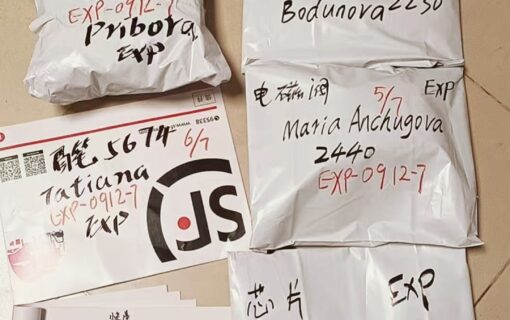 EXP-0912-7
Pribora
EXP
Bodunova 2230
电磁阀
5/7
EXP
Maria Anchugova
2440
EXP-0912-7
5674
6/7
Tatiana
EXP-0912-7
EXP
芯片
EXP